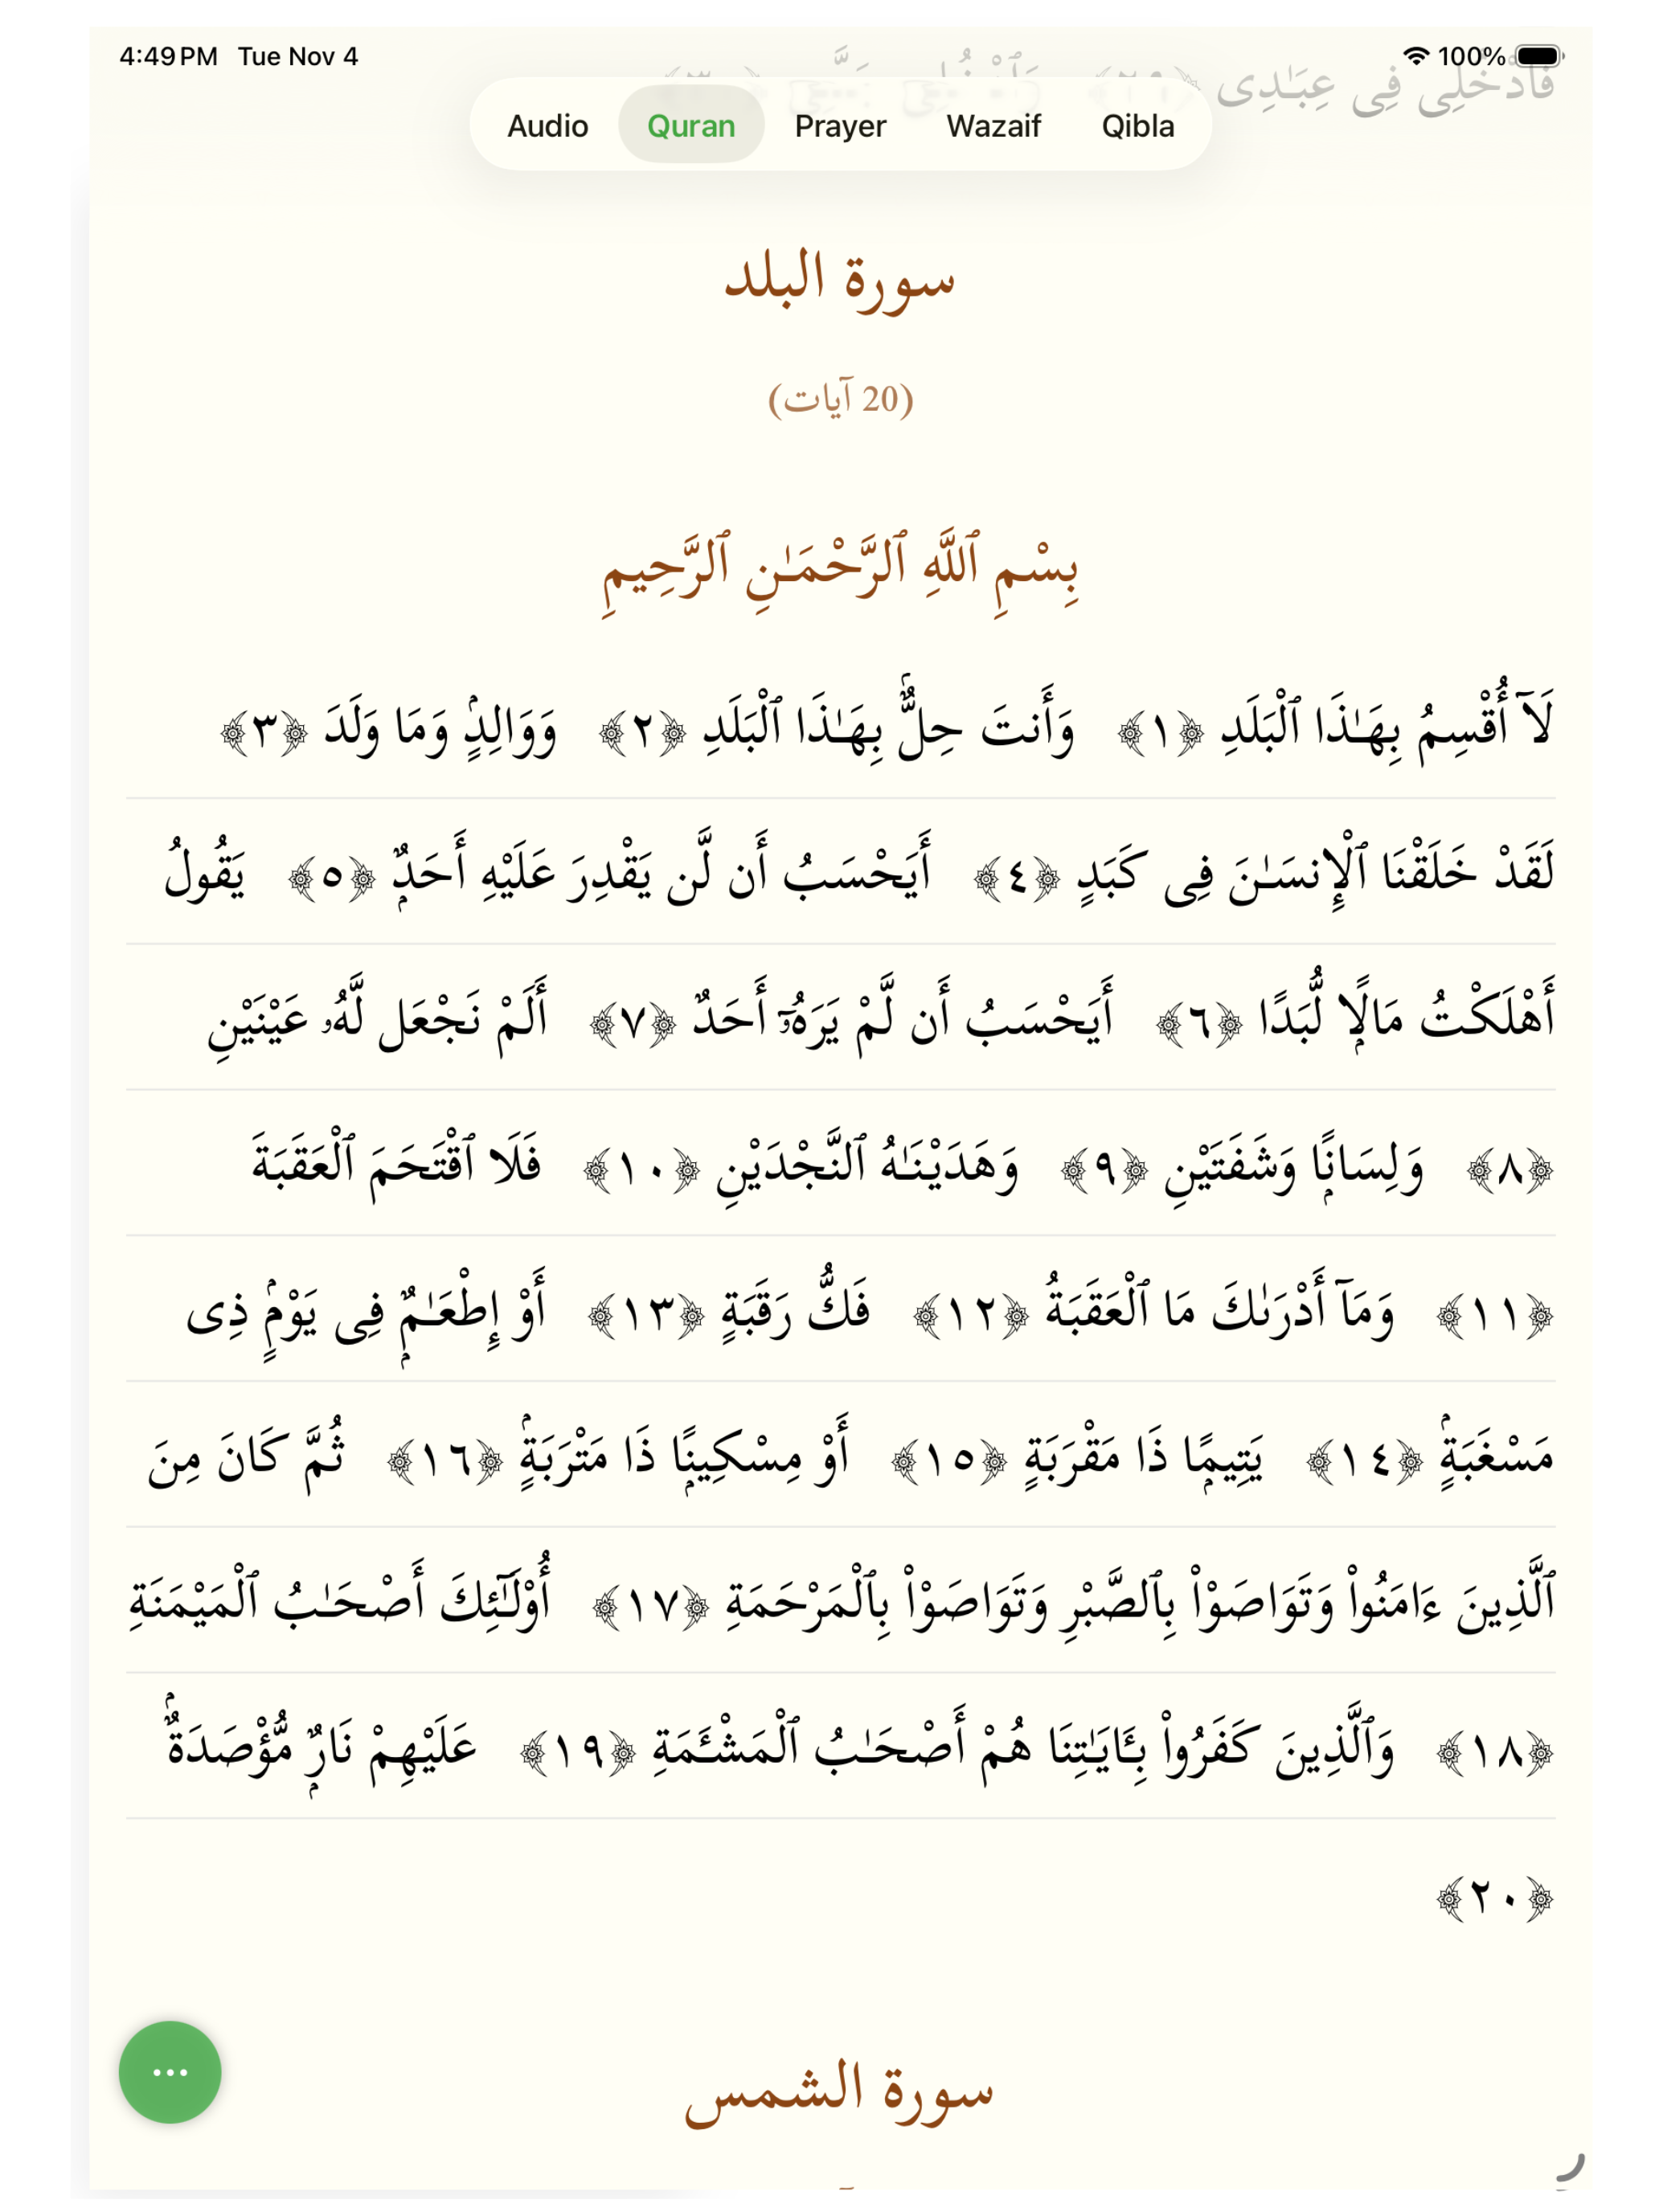 4:49 PM Tue Nov 4 100%
فَٱدْخُلِى فِى عِبَـٰدِى ﴿٢٩﴾
Audio Quran Prayer Wazaif Qibla
سورة البلد
(20 آيات)
بِسْمِ ٱللَّهِ ٱلرَّحْمَـٰنِ ٱلرَّحِيمِ
لَآ أُقْسِمُ بِهَـٰذَا ٱلْبَلَدِ ﴿١﴾ وَأَنتَ حِلٌّۢ بِهَـٰذَا ٱلْبَلَدِ ﴿٢﴾ وَوَالِدٍۢ وَمَا وَلَدَ ﴿٣﴾
لَقَدْ خَلَقْنَا ٱلْإِنسَـٰنَ فِى كَبَدٍ ﴿٤﴾ أَيَحْسَبُ أَن لَّن يَقْدِرَ عَلَيْهِ أَحَدٌۭ ﴿٥﴾ يَقُولُ
أَهْلَكْتُ مَالًۭا لُّبَدًا ﴿٦﴾ أَيَحْسَبُ أَن لَّمْ يَرَهُۥٓ أَحَدٌ ﴿٧﴾ أَلَمْ نَجْعَل لَّهُۥ عَيْنَيْنِ
﴿٨﴾ وَلِسَانًۭا وَشَفَتَيْنِ ﴿٩﴾ وَهَدَيْنَـٰهُ ٱلنَّجْدَيْنِ ﴿١٠﴾ فَلَا ٱقْتَحَمَ ٱلْعَقَبَةَ
﴿١١﴾ وَمَآ أَدْرَىٰكَ مَا ٱلْعَقَبَةُ ﴿١٢﴾ فَكُّ رَقَبَةٍ ﴿١٣﴾ أَوْ إِطْعَـٰمٌۭ فِى يَوْمٍۢ ذِى
مَسْغَبَةٍۢ ﴿١٤﴾ يَتِيمًۭا ذَا مَقْرَبَةٍ ﴿١٥﴾ أَوْ مِسْكِينًۭا ذَا مَتْرَبَةٍۢ ﴿١٦﴾ ثُمَّ كَانَ مِنَ
ٱلَّذِينَ ءَامَنُوا۟ وَتَوَاصَوْا۟ بِٱلصَّبْرِ وَتَوَاصَوْا۟ بِٱلْمَرْحَمَةِ ﴿١٧﴾ أُو۟لَـٰٓئِكَ أَصْحَـٰبُ ٱلْمَيْمَنَةِ
﴿١٨﴾ وَٱلَّذِينَ كَفَرُوا۟ بِـَٔايَـٰتِنَا هُمْ أَصْحَـٰبُ ٱلْمَشْـَٔمَةِ ﴿١٩﴾ عَلَيْهِمْ نَارٌۭ مُّؤْصَدَةٌۢ
﴿٢٠﴾
سورة الشمس